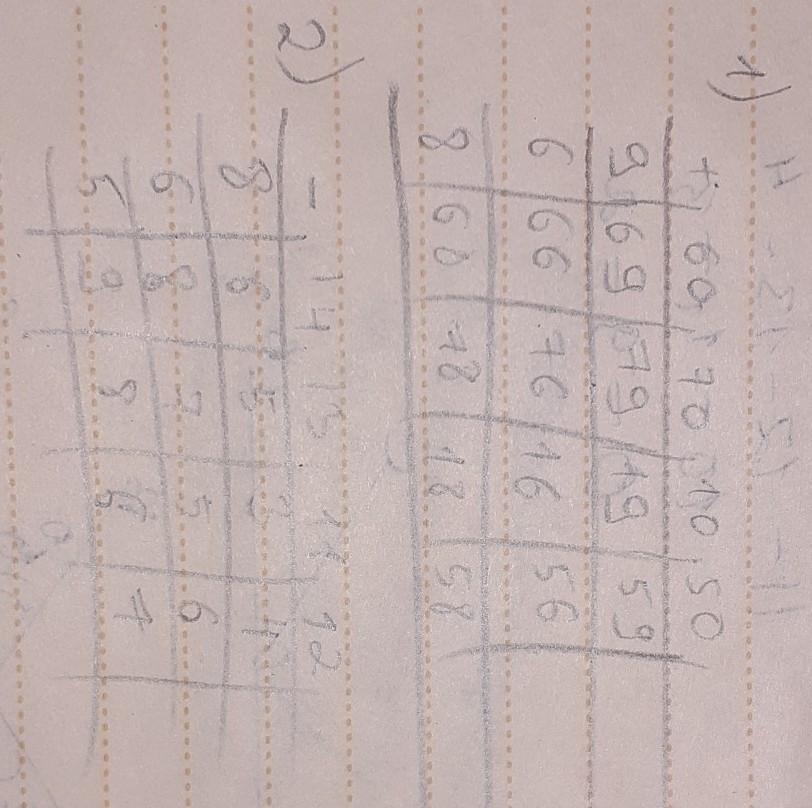 1)
+ 60 70 10 50
9 69 79 19 59
6 66 76 16 56
8 68 78 18 58
2)
- 14 13 11 12
8 6 5 3 4
6 8 7 5 6
5 9 8 6 7